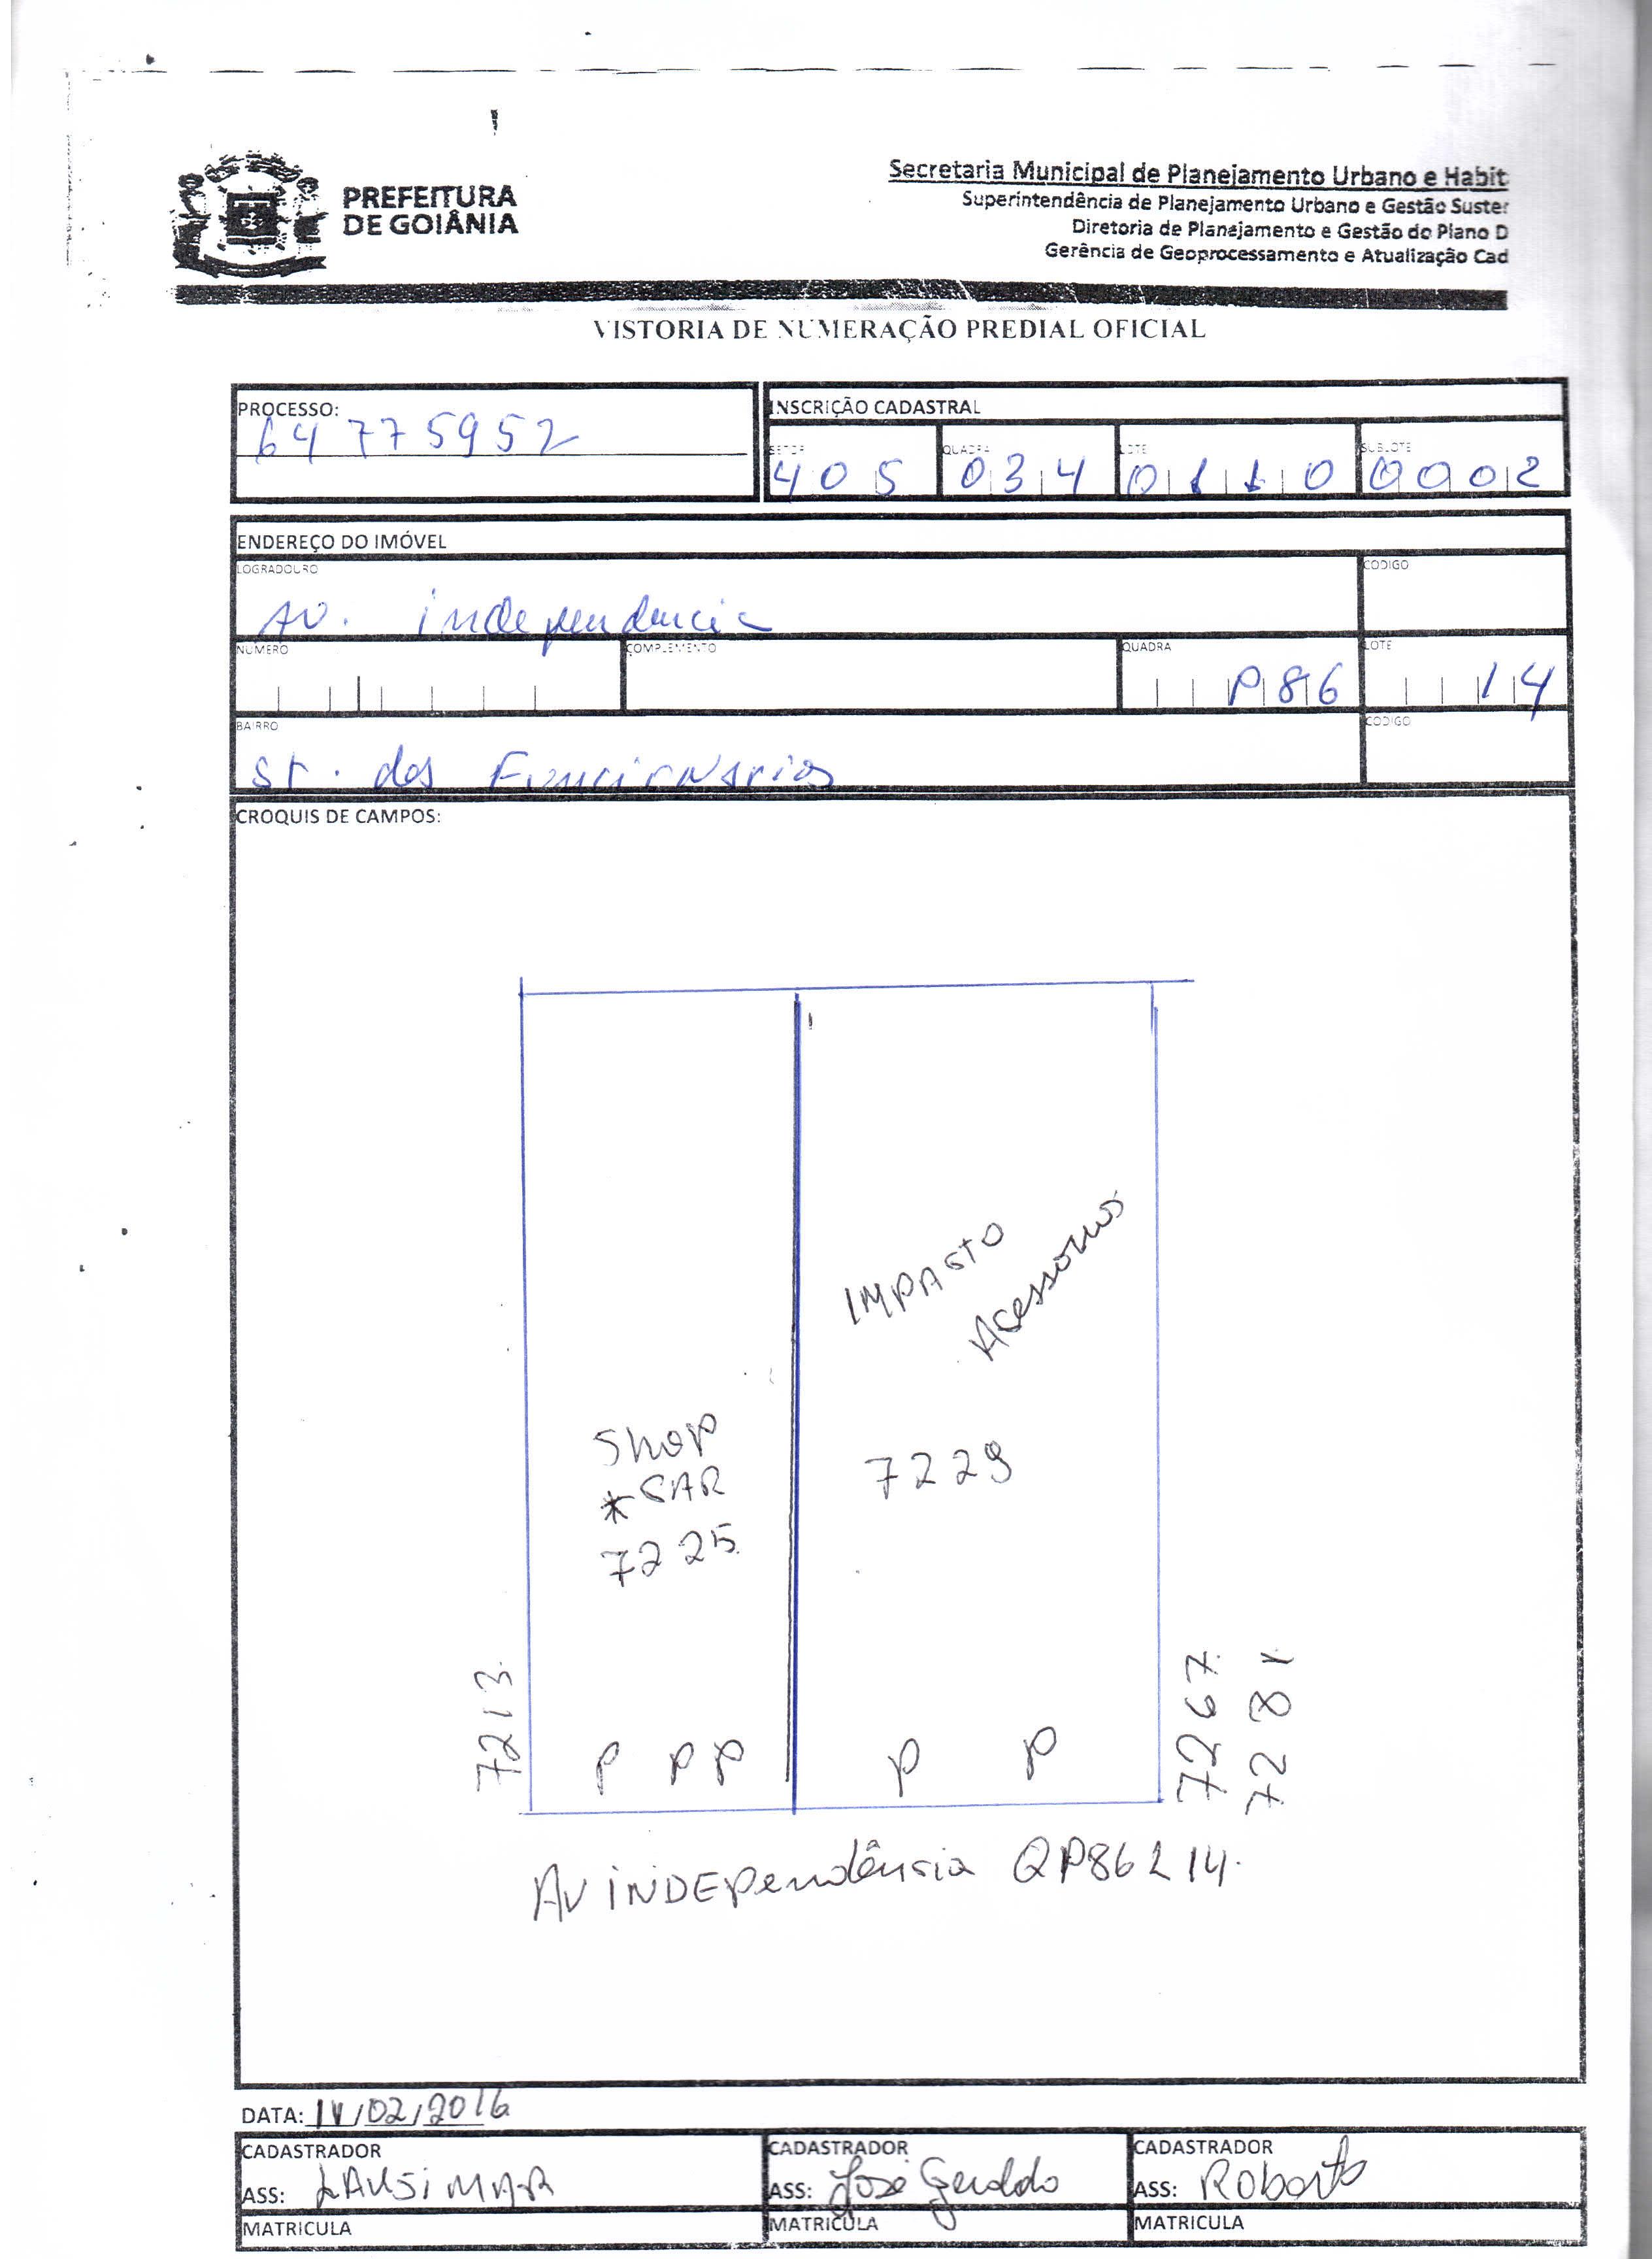 PREFEITURA
DE GOIÂNIA
Secretaria Municipal de Planejamento Urbano e Habit
Superintendência de Planejamento Urbano e Gestão Suster
Diretoria de Planejamento e Gestão do Plano D
Gerência de Geoprocessamento e Atualização Cad
VISTORIA DE NUMERAÇÃO PREDIAL OFICIAL
PROCESSO:
64775952
INSCRIÇÃO CADASTRAL
SETOR QUADRA LOTE SUBLOTE
405 034 0110 0002
ENDEREÇO DO IMÓVEL
LOGRADOURO CODIGO
Av. independencia
NUMERO COMPLEMENTO QUADRA LOTE
P86 14
BAIRRO CODIGO
St. dos Funcionarios
CROQUIS DE CAMPOS:
IMPACTO
Acessorios
Shop
*CAR
7225
7229
7213
P P P P P
7267
7281
AV INDEPendência QP86 L 14.
DATA: /02/2016
CADASTRADOR CADASTRADOR CADASTRADOR
ASS: LAUSiMAR ASS: José Geraldo ASS: Roberto
MATRICULA MATRICULA MATRICULA